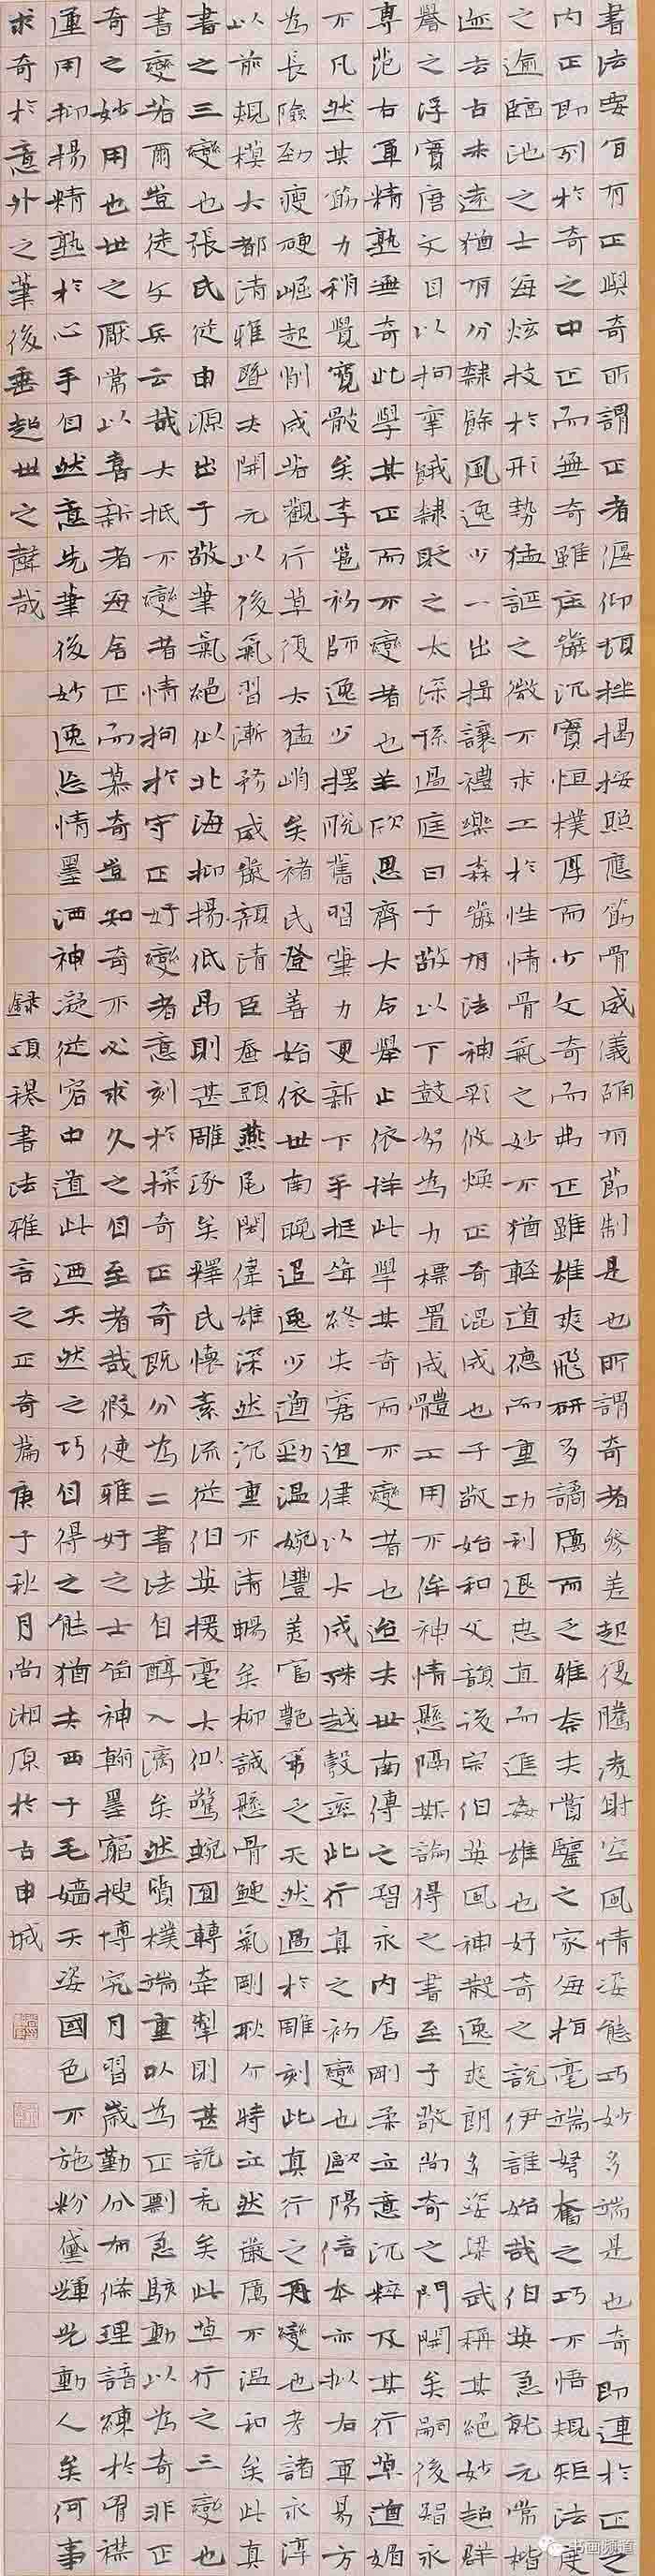 書法要旨有正與奇所謂正者偃仰頓挫揭按照應筋骨威儀确有節制是也所謂奇者參差起復騰凌射空風情姿態巧妙多端是也奇即連於正之
內正即列於奇之中正而無奇雖莊嚴沉實恒樸厚而少文奇而弗正雖雄爽飛妍多譎厲而乏雅奈夫賞鑒之家每指毫端弩奮之巧不悟規矩法度
之逾臨池之士每炫技於形勢猛誕之微不求工於性情骨氣之妙不猶輕道德而重功利退忠直而進姦雄也好奇之說伊誰始哉伯英急就元常楷
迹去古未遠猶有分隸餘風逸少一出揖讓禮樂森嚴有法神彩攸煥正奇混成也子敬始和父韻後宗伯英風神散逸爽朗多姿梁武稱其絕妙超群
譽之浮實唐文目以拘攣餓隸貶之太深孫過庭曰子敬以下鼓努為力標置成體工用不侔神情懸隔斯論得之書至子敬尚奇之門開矣嗣後智永
專范右軍精熟無奇此學其正而不變者也羊欣思齊大令舉止依樣此學其奇而不變者也迨夫世南傳之智永內含剛柔立意沉粹及其行草遒媚
不凡然其筋力稍覺寬骰矣李邕初師逸少擺脫舊習筆力更新下手挺聳終失窘迫律以大成殊越彀率此行真之初變也歐陽信本亦拟右軍易方
為長險勁瘦硬崛起削成若觀行草復太猛峭矣褚氏登善始依世南晚追逸少遒勁溫婉豐美富艷第乏天然過於雕刻此真行之再變也考諸永淳
以前規模大都清雅暨夫開元以後氣習漸務威嚴顏清臣蠶頭燕尾閎偉雄深然沉重不清暢矣柳誠懸骨鯁氣剛耿介特立然嚴厲不溫和矣此真
書之三變也張氏從申源出于敬筆氣絕似北海抑揚低昂則甚雕琢矣釋氏懷素流從伯英援毫大似驚蛇圓轉牽掣則甚詭禿矣此草行之三變也
書變若爾豈徒文兵云哉大抵不變者情拘於守正好變者意刻於探奇正奇既分為二書法自醇入漓矣然質樸端重以為正剽急駭動以為奇非正
奇之妙用也世之厭常以喜新者每舍正而慕奇豈知奇不必求久之自至者哉假使雅好之士留神翰墨窮搜博究月習歲勤分布條理諳練於胸襟
運用抑揚精熟於心手自然意先筆後妙逸忘情墨洒神凝從容中道此迺天然之巧自得之能猶夫西子毛嬙天姿國色不施粉黛輝光動人矣何事
求奇於意外之筆後垂超世之聲哉
錄項穆書法雅言之正奇篇庚子秋月尚湘原於古申城
书画频道